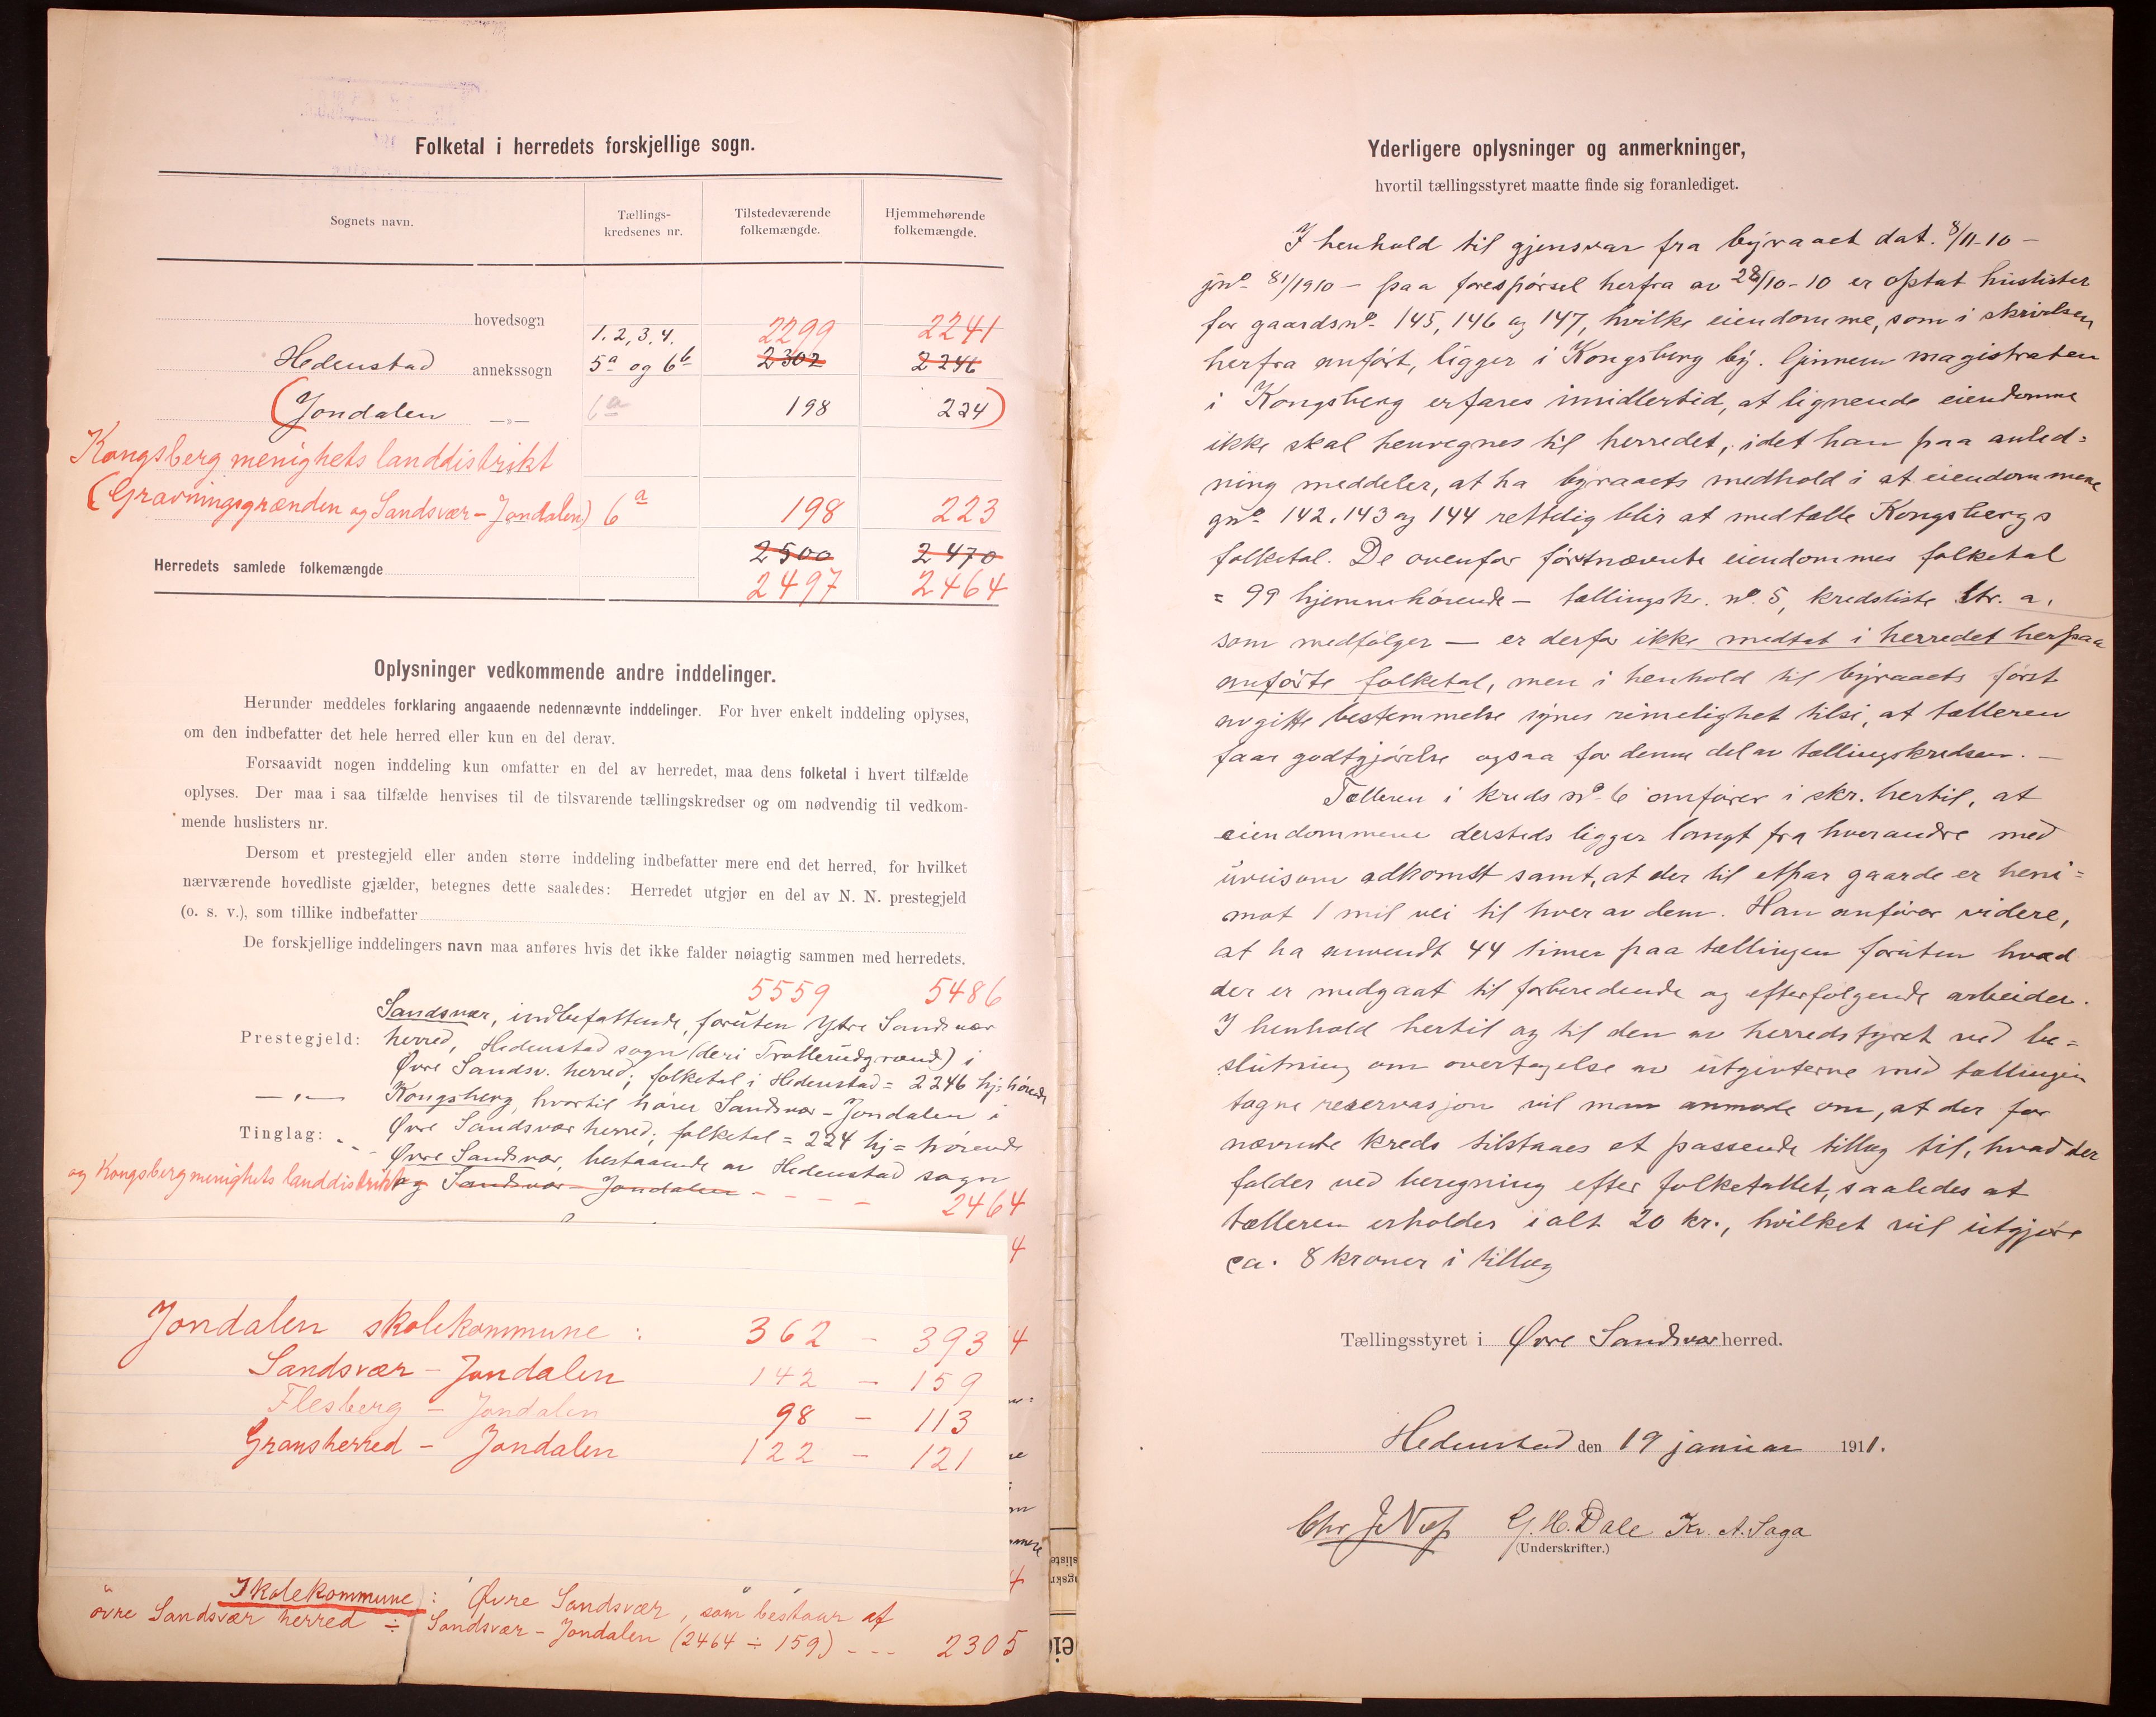 Folketal i herredets forskjellige sogn.
Sognets navn.
Tællings-
kredsenes nr.
Tilstedeværende
folkemængde.
Hjemmehørende
folkemængde.
hovedsogn
1. 2, 3, 4. 2299 2241
Hedenstad annekssogn 5a og 6b 2302 2246
(Jondalen —„— 6a 198 224)
Kongsberg menighets landdistrikt
(Gravningsgrænden og Sandsvær - Jondalen) 6a 198 223
2500 2470
Herredets samlede folkemængde
2497 2464
Oplysninger vedkommende andre inddelinger.
Herunder meddeles forklaring angaaende nedennævnte inddelinger. For hver enkelt inddeling oplyses,
om den indbefatter det hele herred eller kun en del derav.
Forsaavidt nogen inddeling kun omfatter en del av herredet, maa dens folketal i hvert tilfælde
oplyses. Der maa i saa tilfælde henvises til de tilsvarende tællingskredser og om nødvendig til vedkom-
mende huslisters nr.
Dersom et prestegjeld eller anden større inddeling indbefatter mere end det herred, for hvilket
nærværende hovedliste gjælder, betegnes dette saaledes: Herredet utgjør en del av N. N. prestegjeld
(o. s. v.), som tillike indbefatter
De forskjellige inddelingers navn maa anføres hvis det ikke falder nøiagtig sammen med herredets.
5559 5486
Sandsvær, indbefattende, foruten Ytre Sandsvær
Prestegjeld: herred, Hedenstad sogn (deri Trollerudgrænd) i
Øvre Sandsv. herred; folketal i Hedenstad = 2246 hj=hörende
—„— Kongsberg, hvortil hörer Sandsvær - Jondalen i
Øvre Sandsvær herred; folketal = 224 hj=hörende
Tinglag: Øvre Sandsvær, bestaaende av Hedenstad sogn
og Kongsberg menighets landdistrikt og Sandsvær - Jondalen - - - -
2464
4
Jondalen skolekommune : 362 - 393
4
Sandsvær - Jondalen 142 - 159
Flesberg - Jondalen 98 - 113
Gransherred - Jondalen 122 - 121
4
Skolekommune : Øvre Sandsvær, som bestaar af
övre Sandsvær herred ÷ Sandsvær - Jondalen (2464 ÷ 159) - - - 2305
Yderligere oplysninger og anmerkninger,
hvortil tællingsstyret maatte finde sig foranlediget.
I henhold til gjensvar fra byraaet dat. 8/11-10 —
jno 81/1910 — paa forespörsel herfra av 28/10-10 er optat huslister
for gaardsno 145, 146 og 147, hvilke eiendomme, som i skrivelsen
herfra anfört, ligger i Kongsberg by. Gjennem magistraten
i Kongsberg erfares imidlertid, at lignende eiendomme
ikke skal henregnes til herredet, idet han paa anled=
ning meddeler, at ha byraaets medhold i at eiendommene
gno 142, 143 og 144 rettelig blir at medtælle Kongsbergs
folketal. De ovenfor förstnævnte eiendommes folketal
= 99 hjemmehörende — tællingskr. no 5, kredsliste ltr. a,
som medfölger — er derfor ikke medtat i herredet herpaa
anförte folketal, men i henhold til byraaets först
avgitte bestemmelse synes rimelighet tilsi, at tælleren
faar godtgjörelse ogsaa for denne del av tællingskredsen. —
Tælleren i kreds no 6 anförer i skr. hertil, at
eiendommene dersteds ligger langt fra hverandre med
uveisom adkomst samt, at der til etpar gaarde er heni=
mot 1 mil vei til hver av dem. Han anförer videre,
at ha anvendt 44 timer paa tællingen foruten hvad
der er medgaat til forberedende og efterfölgende arbeider.
I henhold hertil og til den av herredstyret ved be=
slutning om overtagelse av utgivterne med tællingen
tagne reservasjon vil man anmode om, at der for
nævnte kreds tilstaaes et passende tillæg til, hvad der
falder ved beregning efter folketallet, saaledes at
tælleren erholder i alt 20 kr., hvilket vil utgjöre
ca. 8 kroner i tillæg
Tællingsstyret i Øvre Sandsvær herred.
Hedenstad den 19 januar 1911.
G. H. Dale Kr. A. Saga
(Underskrifter.)